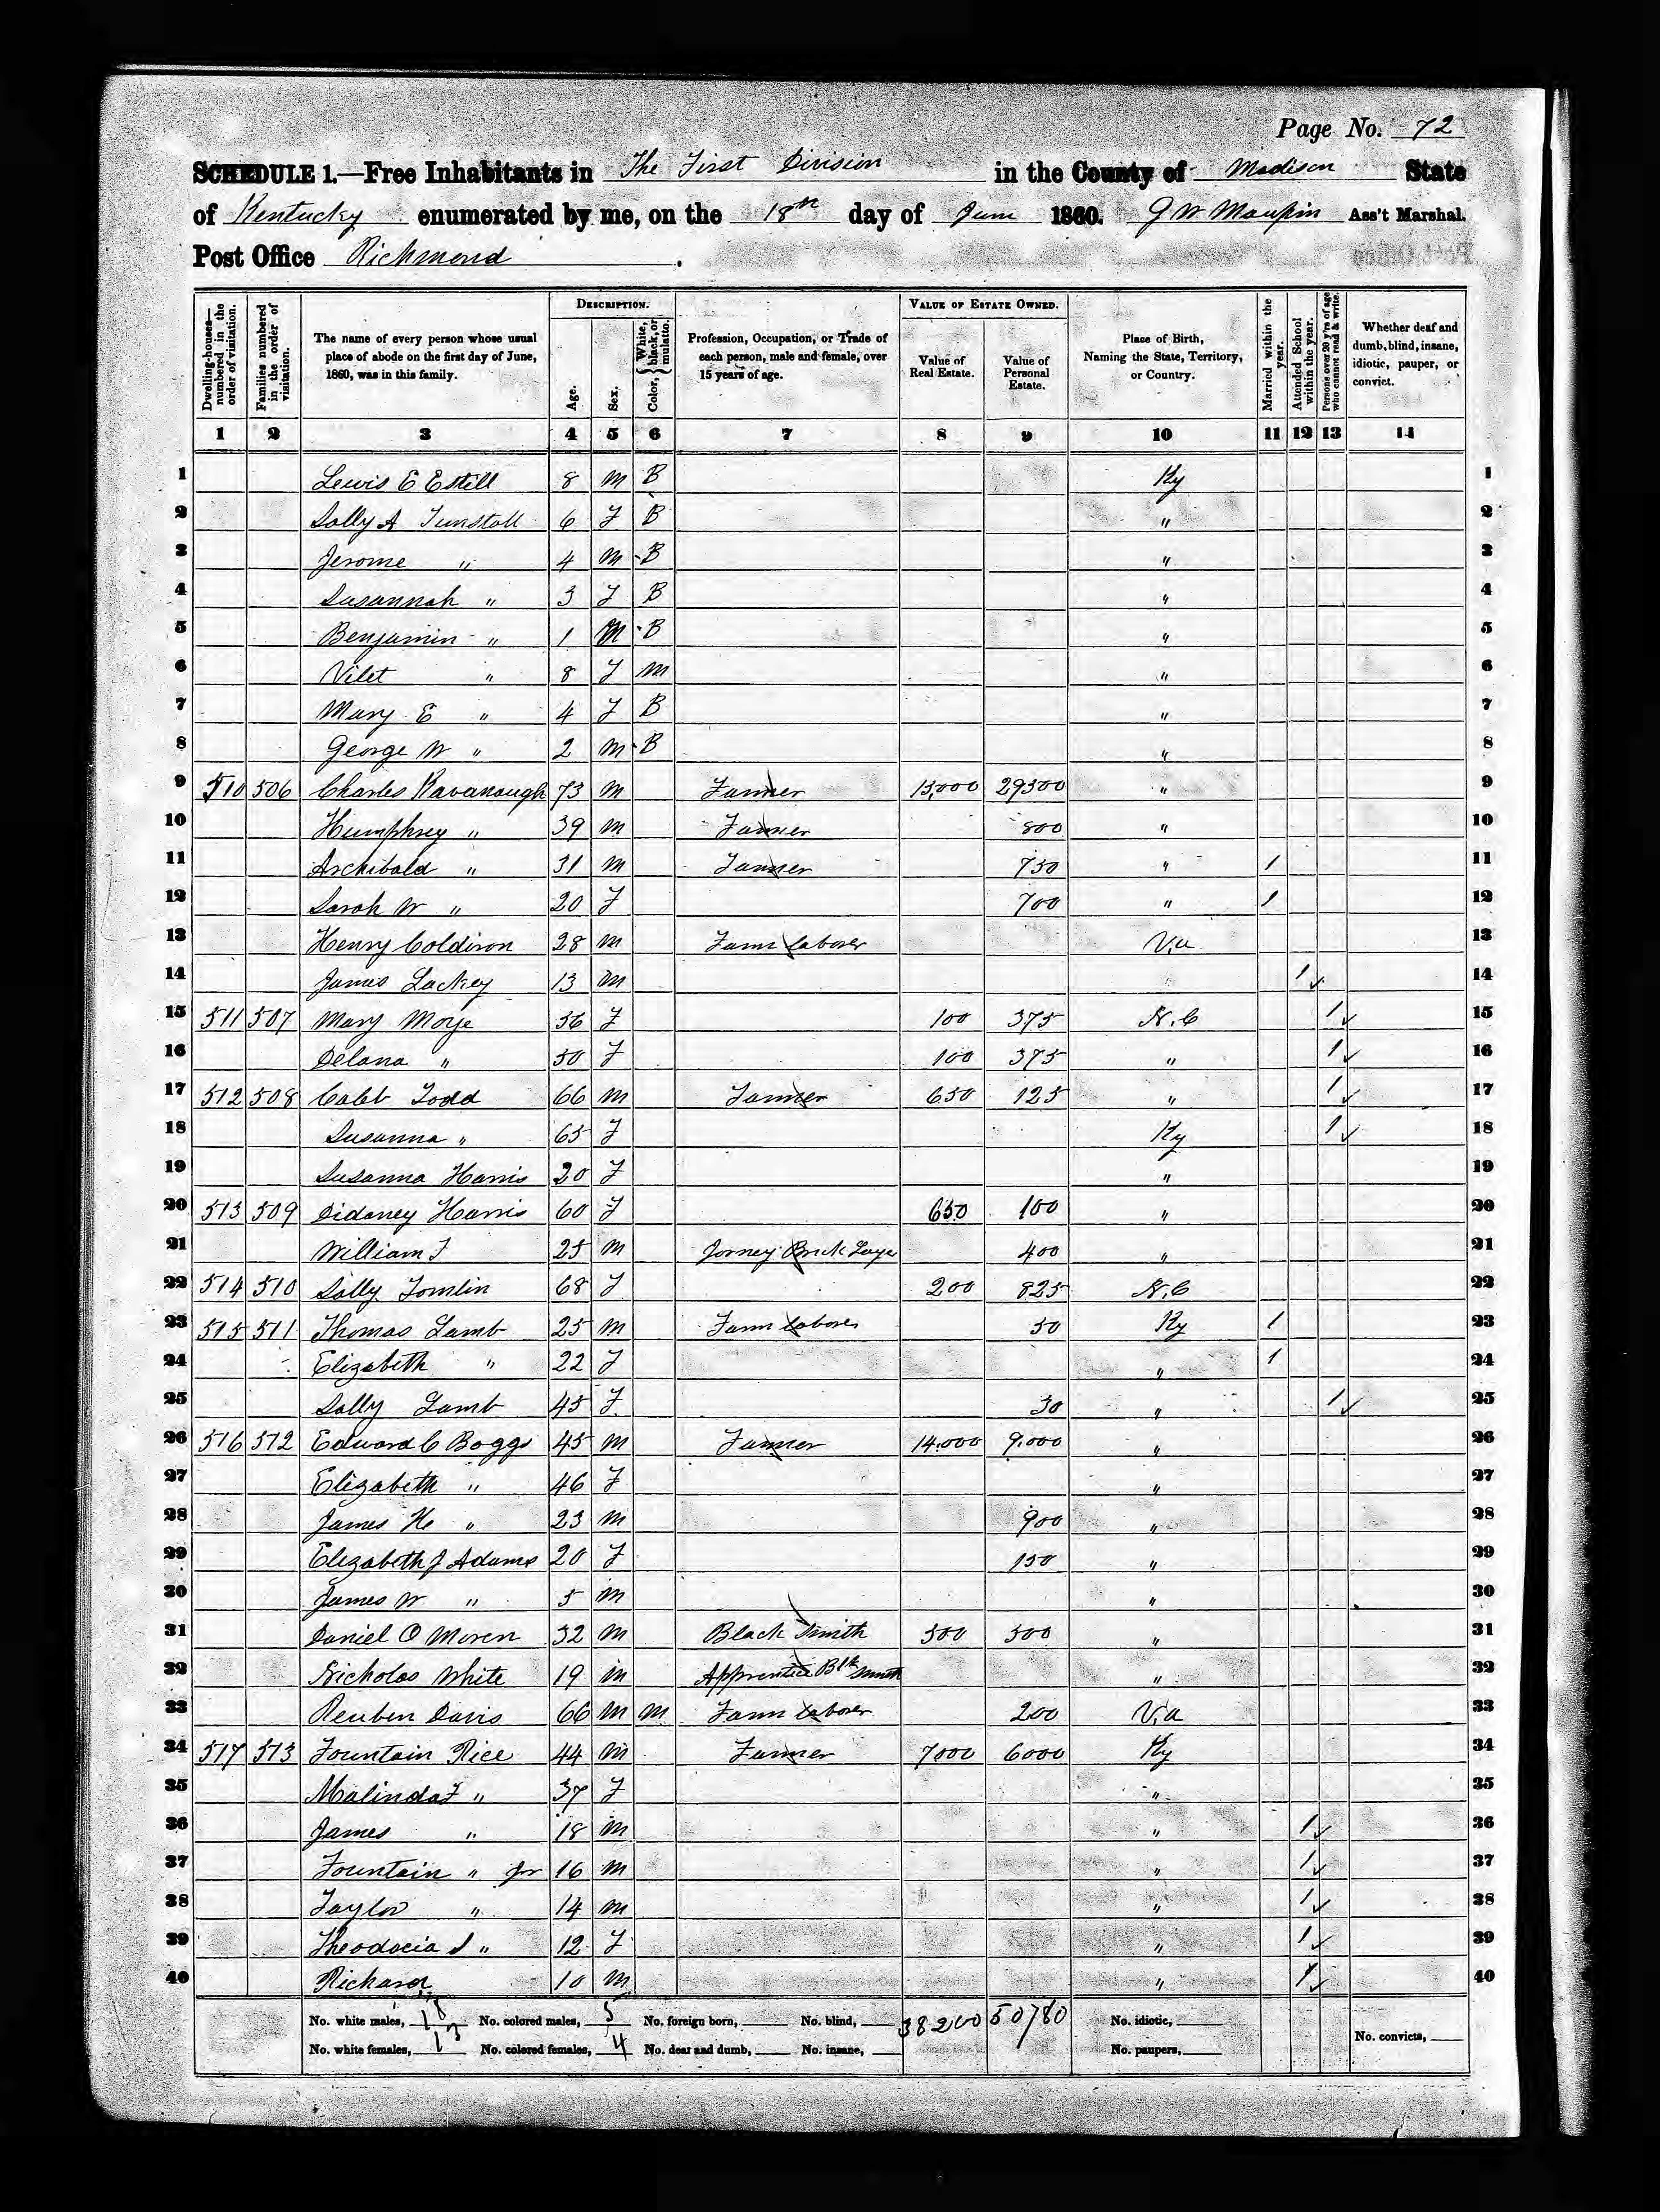 Page No. 72
SCHEDULE 1.—Free Inhabitants in The First Division in the County of Madison State
of Kentucky enumerated by me, on the 18th day of June 1860. G W Maupin Ass't Marshal.
Post Office Richmond.
Dwelling-houses—numbered in the order of visitation. Families numbered in the order of visitation. The name of every person whose usual place of abode on the first day of June, 1860, was in this family. DESCRIPTION. Age. Sex. Color, { White, black, or mulatto. Profession, Occupation, or Trade of each person, male and female, over 15 years of age. VALUE OF ESTATE OWNED. Value of Real Estate. Value of Personal Estate. Place of Birth, Naming the State, Territory, or Country. Married within the year. Attended School within the year. Persons over 20 y'rs of age who cannot read & write. Whether deaf and dumb, blind, insane, idiotic, pauper, or convict.
1 2 3 4 5 6 7 8 9 10 11 12 13 14
1 Lewis E Estill 8 m B Ky 1
2 Sally A Tunstall 6 F B " 2
3 Jerome " 4 m B " 3
4 Susannah " 3 F B " 4
5 Benjamin " 1 M B " 5
6 Vilet " 8 F m " 6
7 Mary E " 4 F B " 7
8 George W " 2 m B " 8
9 510 506 Charles Kavanaugh 73 m Farmer 15,000 29500 " 9
10 Humphrey " 39 m Farmer 800 " 10
11 Archibald " 31 m Farmer 750 " 1 11
12 Sarah W " 20 F 700 " 1 12
13 Henry Coldiron 28 m Farm Laborer V.a 13
14 James Lackey 13 m 1 ✓ 14
15 511 507 Mary Moye 56 F 100 375 N.C 1 ✓ 15
16 Delana " 50 F 100 375 " 1 ✓ 16
17 512 508 Caleb Todd 66 m Farmer 650 125 " 1 ✓ 17
18 Susanna " 65 F Ky 1 ✓ 18
19 Susanna Harris 20 F " 19
20 513 509 Sidaney Harris 60 F 650 100 " 20
21 William F 25 m Jorney Brick Layer 400 " 21
22 514 510 Sally Tomlin 68 F 200 825 N.C 22
23 515 511 Thomas Lamb 25 m Farm Laborer 50 Ky 1 23
24 Elizabeth " 22 F " 1 24
25 Sally Lamb 45 F 30 " 1 ✓ 25
26 516 512 Edward C Boggs 45 m Farmer 14.000 9.000 " 26
27 Elizabeth " 46 F " 27
28 James H " 23 m 900 " 28
29 Elizabeth J Adams 20 F 150 " 29
30 James W " 5 m " 30
31 Daniel O Moren 32 m Black Smith 500 500 " 31
32 Nicholas White 19 m Apprentice Blk Smith " 32
33 Reuben Davis 66 m m Farm Laborer 200 V.a 33
34 517 513 Fountain Rice 44 m Farmer 7000 6000 Ky 34
35 Malinda F " 37 F " 35
36 James " 18 m " 1 ✓ 36
37 Fountain " Jr 16 m " 1 ✓ 37
38 Taylor " 14 m " 1 ✓ 38
39 Theodocia S " 12 F " 1 ✓ 39
40 Richard 10 m " 1 ✓ 40
No. white males, 18 No. colored males, 5 No. foreign born, No. blind, 38200 50780 No. idiotic,
No. white females, 13 No. colored females, 4 No. deaf and dumb, No. insane, No. paupers, No. convicts,